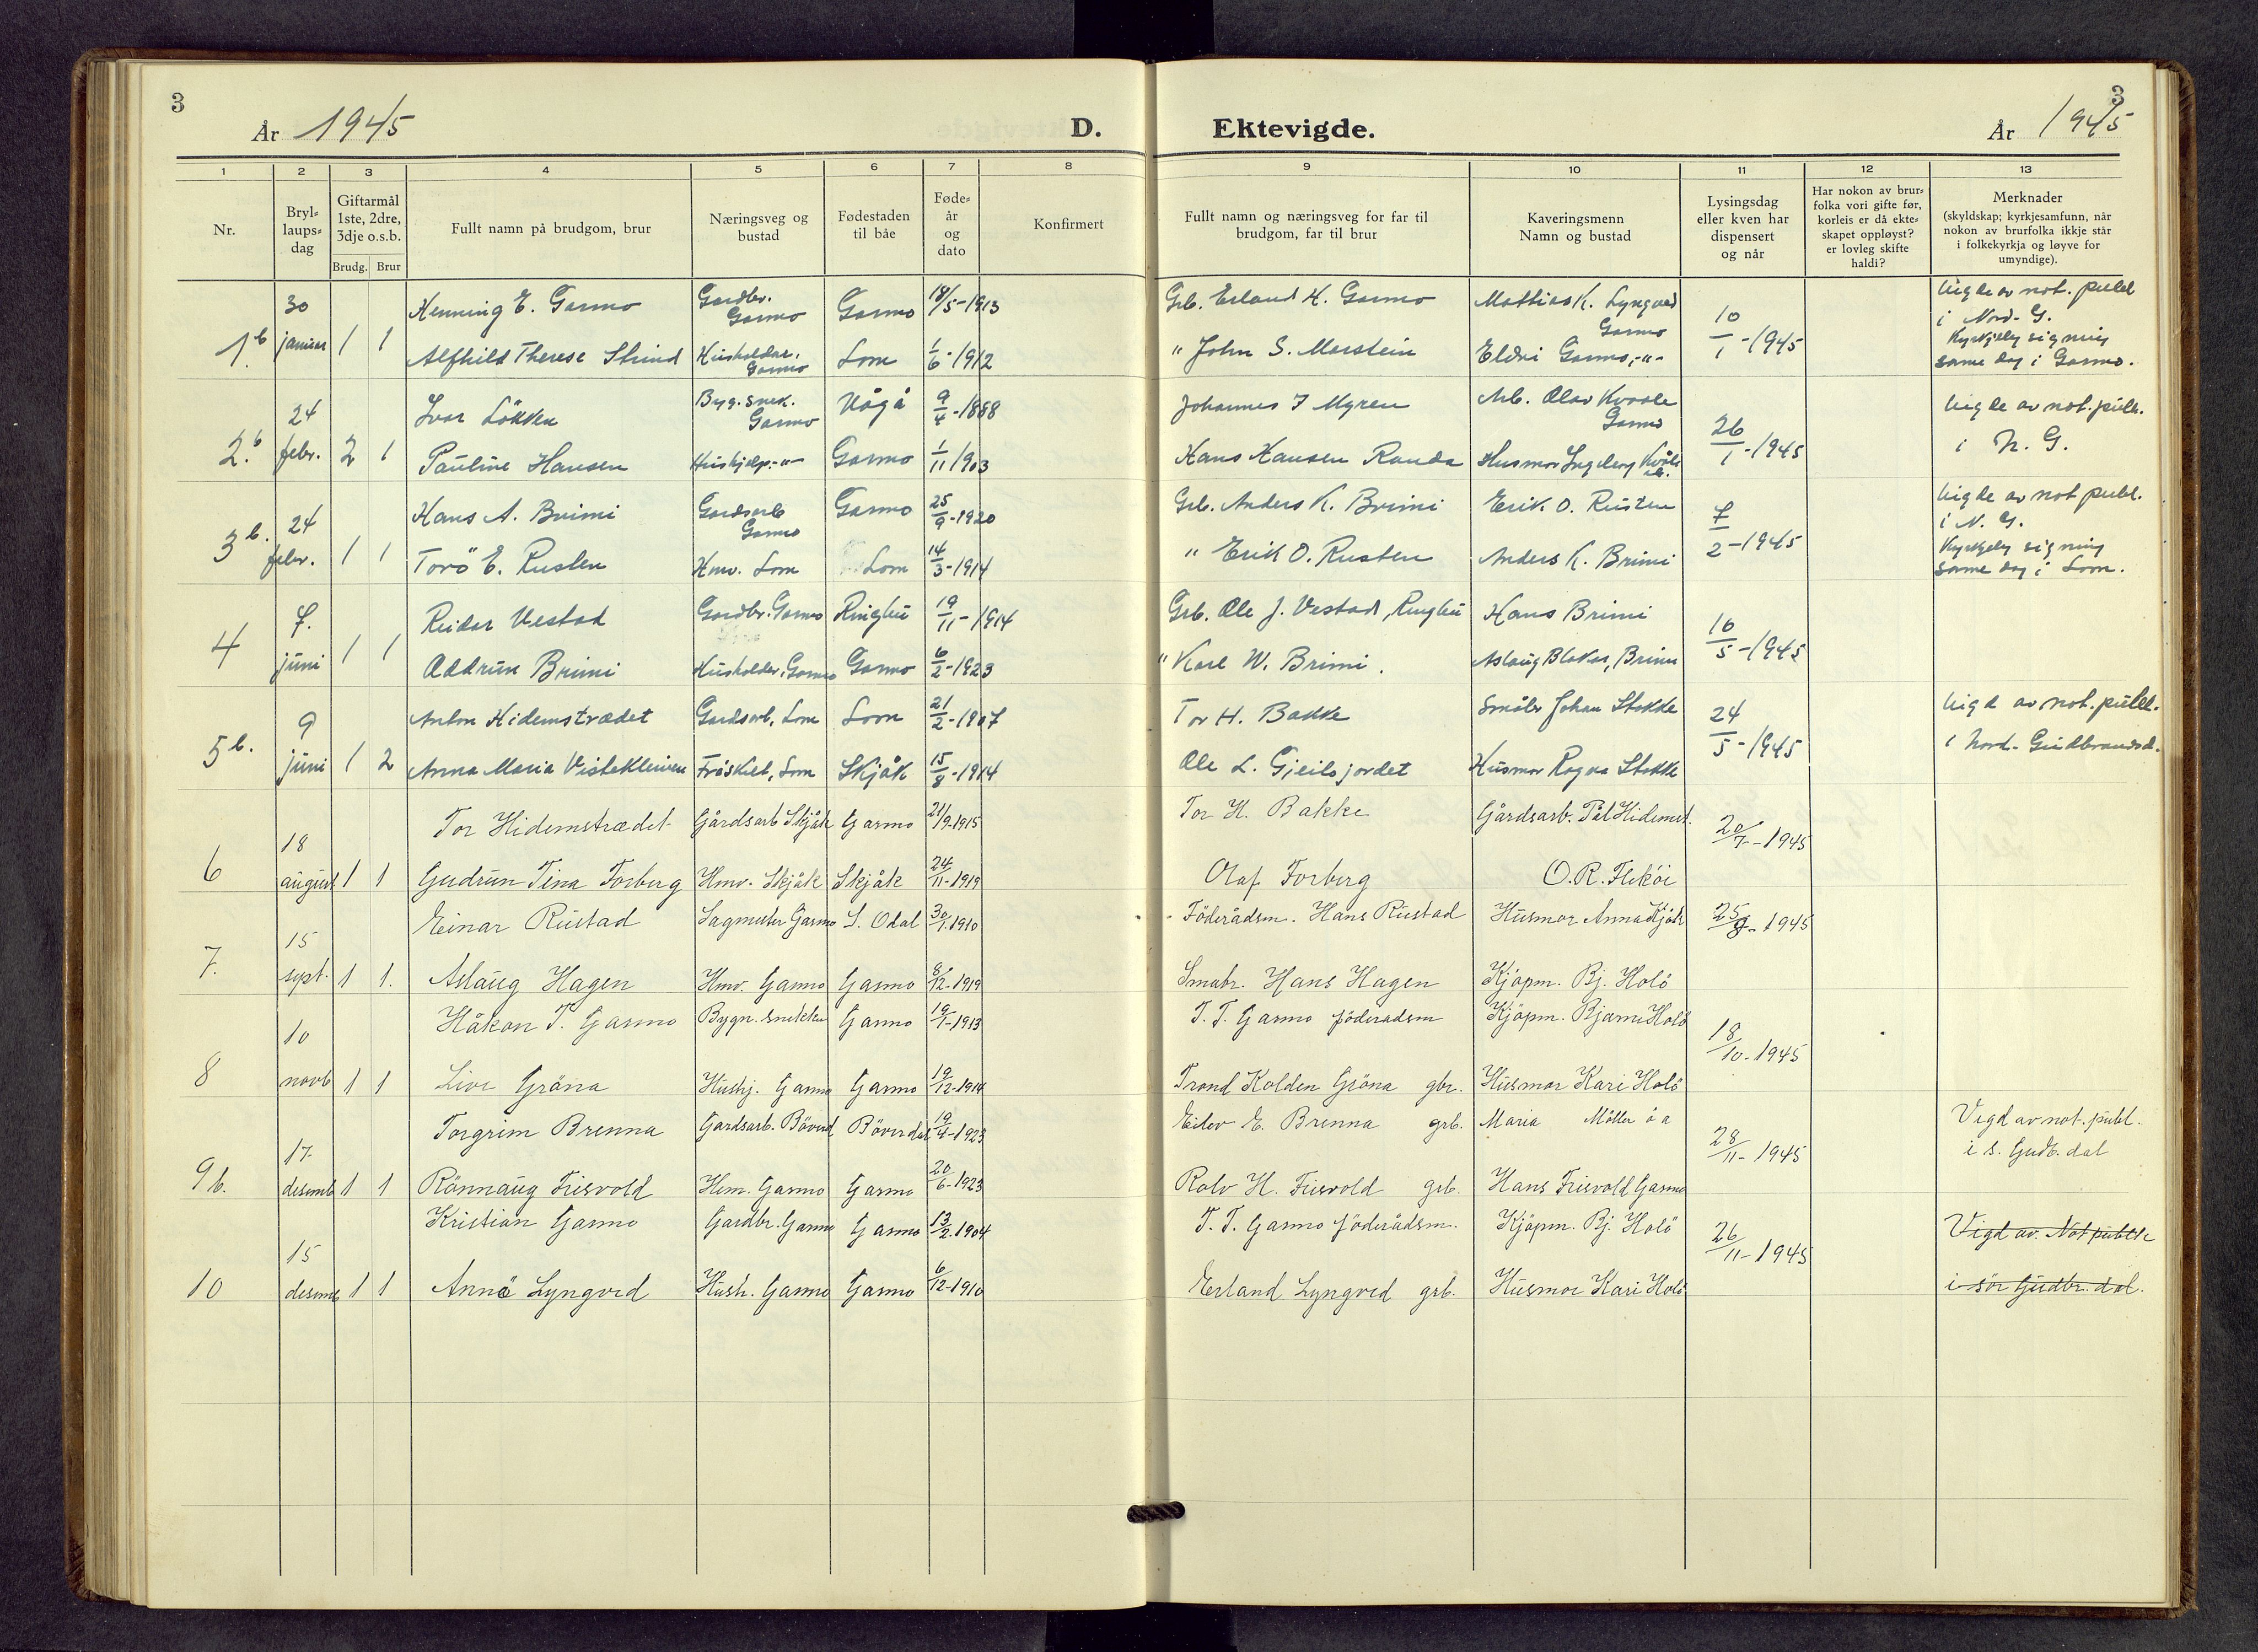 3
År 1945
D.
Ektevigde.
År 1945
3
1
2
3
4
5
6
7
8
9
10
11
12
13
Nr.
Bryl-
laups-
dag
Giftarmål
1ste, 2dre,
3dje o.s.b.
Brudg. Brur
Fullt namn på brudgom, brur
Næringsveg og
bustad
Fødestaden
til båe
Føde-
år
og
dato
Konfirmert
Fullt namn og næringsveg for far til
brudgom, far til brur
Kaveringsmenn
Namn og bustad
Lysingsdag
eller kven har
dispensert
og når
Har nokon av brur-
folka vori gifte før,
korleis er då ekte-
skapet oppløyst?
er lovleg skifte
haldi?
Merknader
(skyldskap; kyrkjesamfunn, når
nokon av brurfolka ikkje står
i folkekyrkja og løyve for
umyndige).
1.b 30 januar 1 1
Henning E. Garmo Gardbr. Garmo Garmo 18/5-1913 Grb. Erland H. Garmo Mathias K. Lyngved Garmo 10/1-1945
Alfhild Therese Strind Husholdar, Garmo Lom 1/6-1912 " John S. Marstein Eldri Garmo, -"-
Vigde av not. publ
i Nord-G.
Kyrkjeleg signing
same dag i Garmo.
2.b 24 febr. 2 1
Ivar Løkken Byg.snek. Garmo Vågå 9/4-1888 Johannes J Myren Arb. Olav Kvaale Garmo 26/1-1945
Pauline Hansen Hushjelp -"- Garmo 1/11 1903 Hans Hansen Randa Husmor Ingeborg
Vigde av not. publ.
i N. G.
3b. 24 febr. 1 1
Hans A. Brimi Gardsarb Garmo Garmo 25/9-1920 Grb. Anders K. Brimi Erik O. Rusten 7/2-1945
Torö E. Rusten Hmv. Lom Lom 14/3-1914 " Erik O. Rusten Anders K. Brimi
Vigde av not publ.
i N. G.
Kyrkjeleg signing
same dag i Lom.
4 7. juni 1 1
Reidar Vestad Gardbr. Garmo Ringbu 19/11-1914 Grb. Ole J. Vestad, Ringbu Hans Brimi 16/5-1945
Oddrun Brimi Husholder, Garmo Garmo 6/2-1923 " Karl W. Brimi. Aslaug Blakar, Brimi
5b. 9 juni 1 2
Anton Hidemstrædet Gardsarb, Lom Lom 21/2-1907 Tor H. Bakke Småbr Johan Stokke 24/5-1945
Anna Maria Vistekleiven Fråskilt, Lom Skjåk 15/8-1914 Ole L. Gjeilsjordet Husmor Ragna Stokke
Vigd av not. publ.
i Nord-Gudbrandsd.
6 18 august 1 1
Tor Hidemstrædet Gårdsarb Skjåk Garmo 21/9-1915 Tor H. Bakke Gårdsarb. Pål Hidemst. 20/7-1945
Gudrun Tina Forberg Hmv. Skjåk Skjåk 24/11-1919 Olaf Forberg O. R. Flekøi
7. 15 sept. 1 1.
Einar Rustad Sagmester Garmo S. Odal 30/1-1910 Föderådsm. Hans Rustad Husmor Anna Kjök 25/8-1945
Aslaug Hagen Hmv. Garmo Garmo 8/12-1919 Småbr. Hans Hagen Kjöpm. Bj. Holö
8 10 novb 1 1
Håkon T. Garmo Bygn. snekker Garmo 19/1-1913 T. T. Garmo föderådsm Kjöpm. Bjarne Holö 18/10-1945
Live Gröna Hushj. Garmo Garmo 19/12-1914 Trond Kolden Gröna gbr. Husmor Kari Holö
9 b. 17 desemb 1 1
Torgrim Brenna Gardsarb. Böverd Böverdal 19/4-1923 Eilev E. Brenna grb. Maria 28/11-1945
Rönnaug Frisvold Hm. Garmo Garmo 20/6-1923 Rolv H. Frisvold grb. Hans Frisvold Garmo
Vigd av not. publ.
i S. Gudb. dal
10 15 desemb 1 1
Kristian Garmo Gardbr. Garmo Garmo 13/2-1904 T. T. Garmo föderådsm. Kjöpm. Bj. Holö 26/11-1945
Anna Lyngved Hush. Garmo Garmo 6/12-1910 Erland Lyngved grb. Husmor Kari Holö
Vigd av. Not publ
i sör Gudbr. dal.